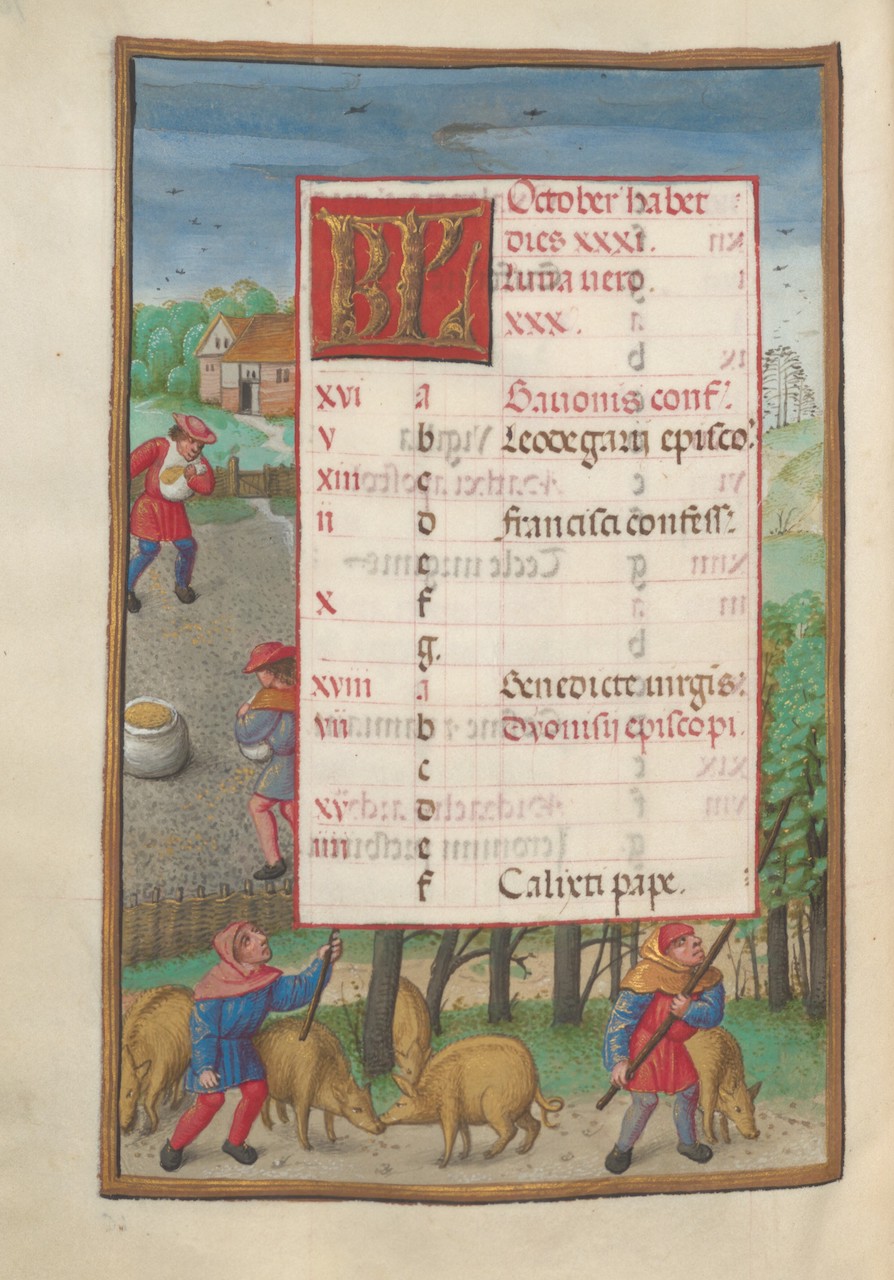 KL October habet
dies xxxi.
Luna uero.
xxx.
xvi a Bauonis conf
v b Leodegarij episco
xiii c
ii d Francisci confess
e
x f
g.
xviii a Benedicte uirgis
vii b Dyonisij episcopi.
c
xv d
iiii e
f Calixti pape.